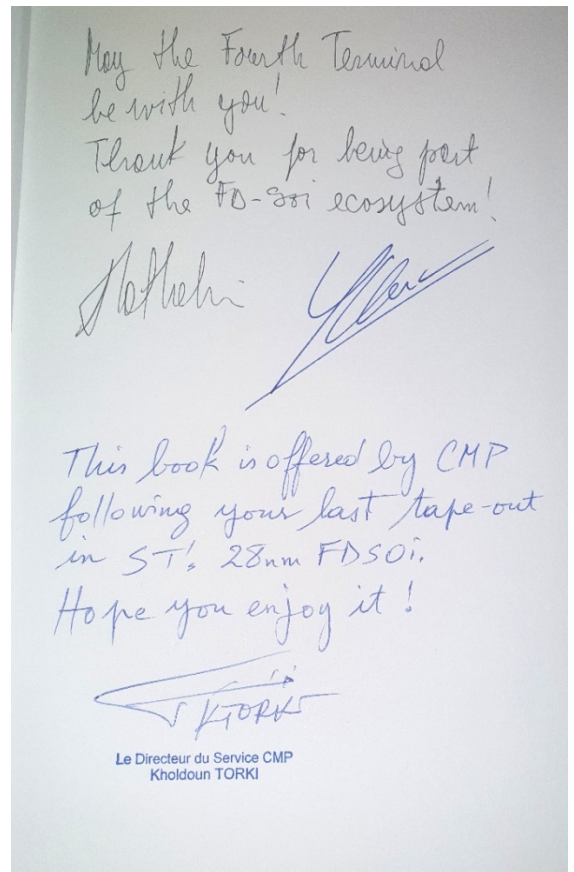 May the Fourth Terminal
be with you!
Thank you for being part
of the FD-SOI ecosystem!
This book is offered by CMP
following your last tape-out
in ST's 28nm FDSOI.
Hope you enjoy it!
KTORKI
Le Directeur du Service CMP
Kholdoun TORKI